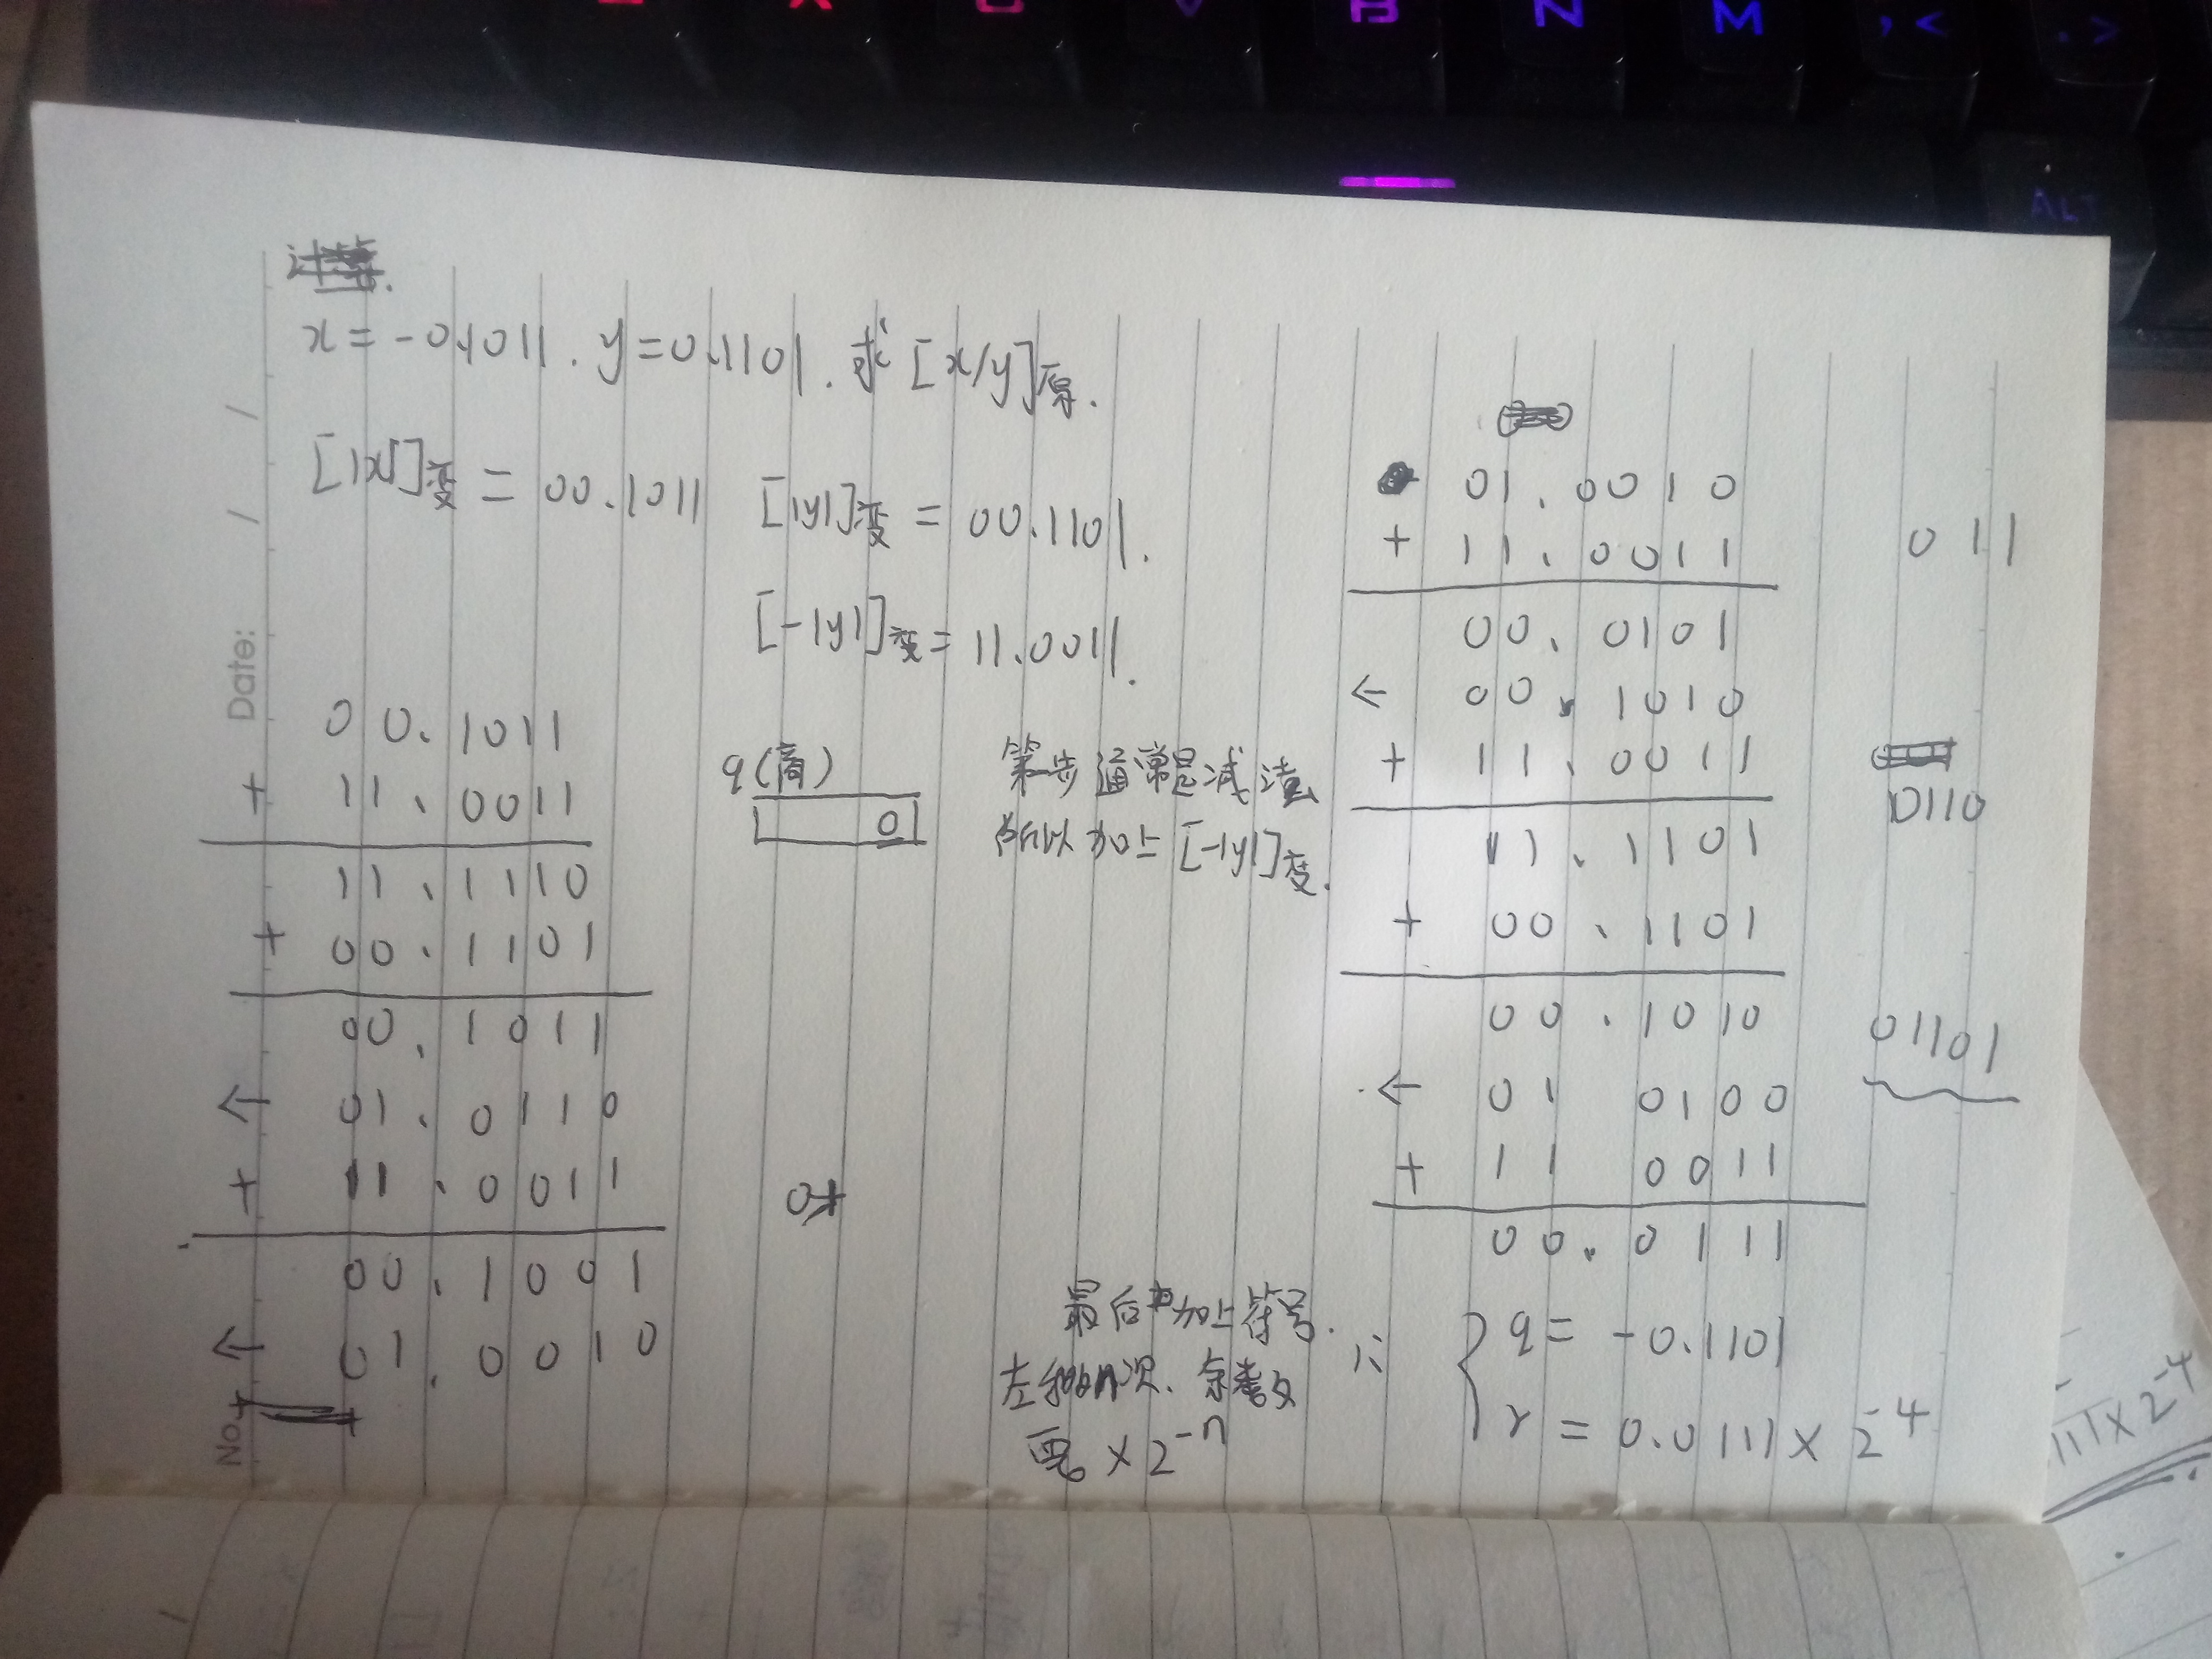 X
C
V
B
N
M
, <
. >
ALT
Date: / /
No.
x = -0.1011. y = 0.1101. 求 [x/y]原.
[|x|]变 = 00.1011
[|y|]变 = 00.1101.
[-|y|]变 = 11.0011.
00.1011
+ 11.0011
11.1110
+ 00.1101
00.1011
← 01.0110
+ 11.0011
00.1001
← 01.0010
q(商)
0
第一步通常是减法
所以加上[-|y|]变.
01
01.0010
+ 11.0011
011
00.0101
← 00.1010
+ 11.0011
0110
11.1101
+ 00.1101
00.1010
01101
← 01 0100
+ 11 0011
00.0111
最后再加上符号.
左移n次. 余数
要 × 2^-n
∴ { q = -0.1101
r = 0.0111 × 2^-4
111 × 2^-4